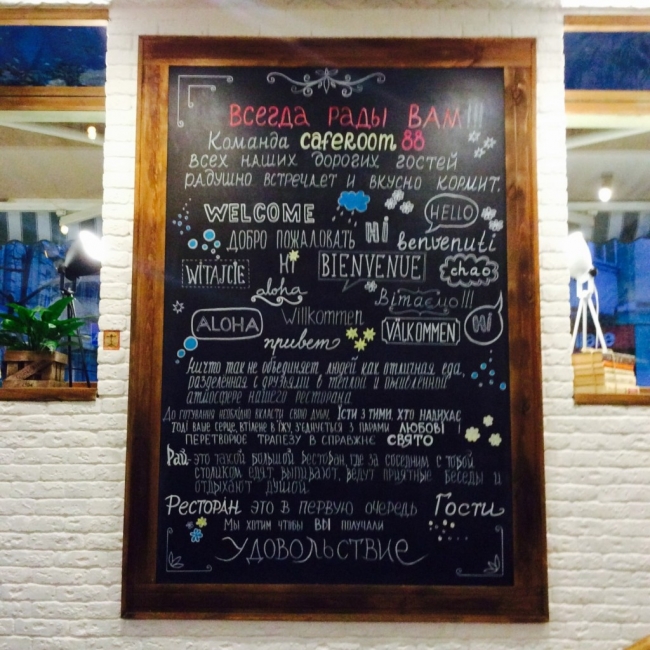 Всегда рады Вам!!!
Команда CAFEROOM 88
всех наших дорогих гостей
радушно встречает и вкусно кормит.
WELCOME HELLO
ДОБРО ПОЖАЛОВАТЬ Hi benvenuti
WITAJCIE Hi BIENVENUE chao
aloha Вітаємо!!!
ALOHA Willkommen VÄLKOMMEN Hi
привет
Ничто так не объединяет людей как отличная еда,
разделенная с друзьями в теплой и оживленной
атмосфере нашего ресторана
До готування необхідно вкласти свою душу. Їсти з тими, хто надихає
тоді ваше серце, втілене в їжу, з'єднується з парами любові і
перетворює трапезу в справжнє свято
Рай - это такой большой ресторан, где за соседним с тобой
столиком едят, выпивают, ведут приятные беседы и
отдыхают душой.
Ресторан это в первую очередь Гости
Мы хотим чтобы вы получали
Удовольствие